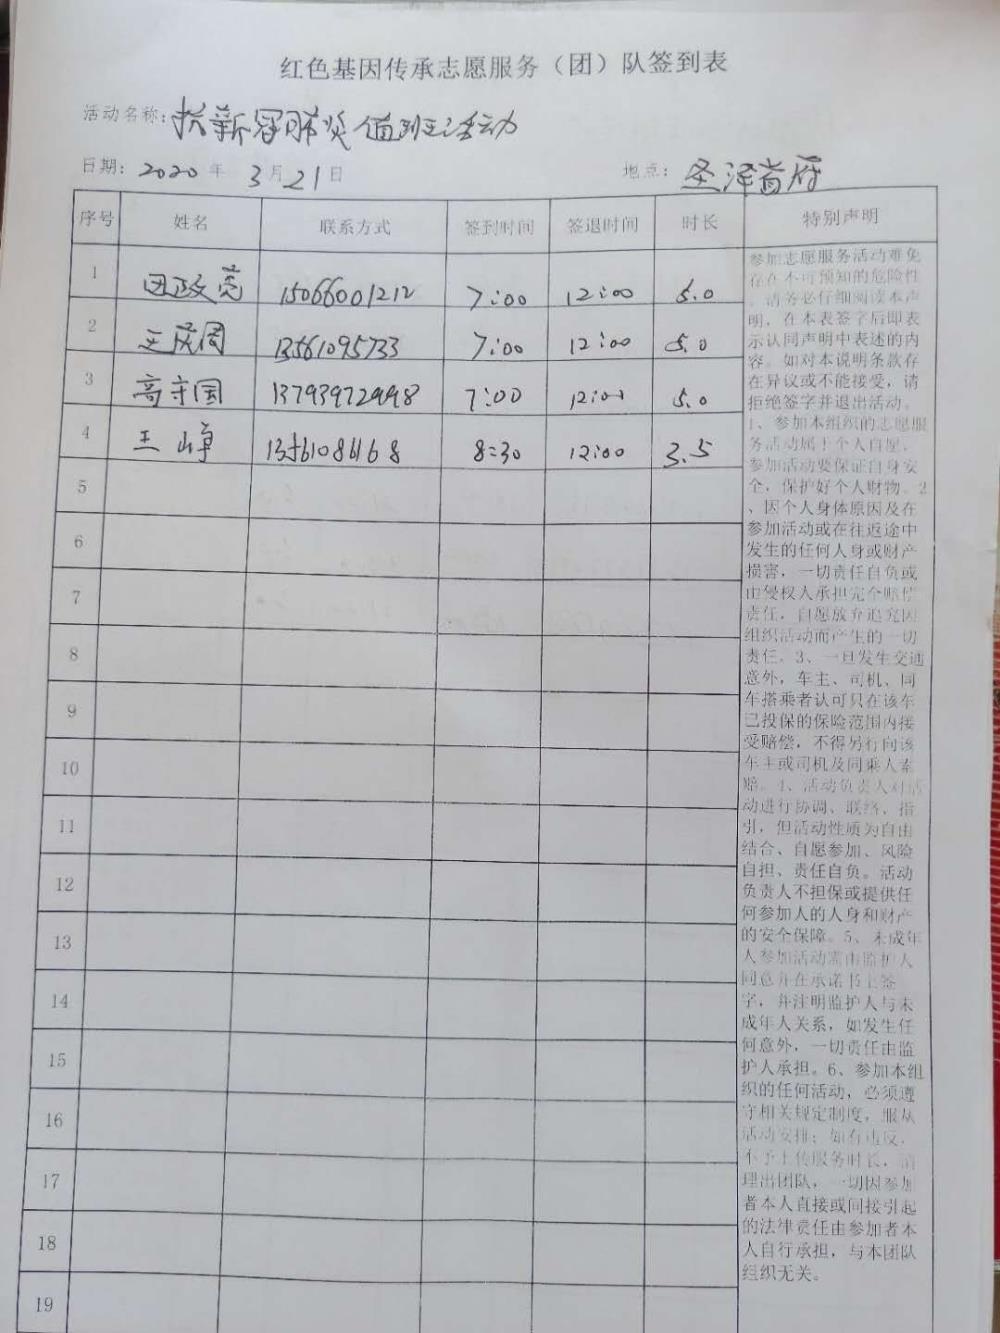 红色基因传承志愿服务（团）队签到表
活动名称：抗新冠肺炎值班活动
日期：2020年 3月21日 地点：圣泽首府
序号 姓名 联系方式 签到时间 签退时间 时长 特别声明
1 田政亮 15066001212 7:00 12:00 5.0
2 王庆周 13561095733 7:00 12:00 5.0
3 高守国 13793972998 7:00 12:00 5.0
4 王 8:30 12:00 3.5
5
6
7
8
9
10
11
12
13
14
15
16
17
18
19
参加志愿服务活动难免
存在不可预知的危险性
，请务必仔细阅读本声
明，在本表签字后即表
示认同声明中表述的内
容。如对本说明条款存
在异议或不能接受，请
拒绝签字并退出活动。
1、参加本组织的志愿服
务活动属于个人自愿，
参加活动要保证自身安
全，保护好个人财物。2
、因个人身体原因及在
参加活动或在往返途中
发生的任何人身或财产
损害，一切责任自负或
由侵权人承担完全赔偿
责任，自愿放弃追究因
组织活动而产生的一切
责任。3、一旦发生交通
意外，车主、司机、同
车搭乘者认可只在该车
已投保的保险范围内接
受赔偿，不得另行向该
车主或司机及同乘人索
赔。4、活动负责人对活
动进行协调、联络、指
引，但活动性质为自由
结合、自愿参加、风险
自担、责任自负。活动
负责人不担保或提供任
何参加人的人身和财产
的安全保障。5、未成年
人参加活动需由监护人
同意并在承诺书上签
字，并注明监护人与未
成年人关系，如发生任
何意外，一切责任由监
护人承担。6、参加本组
织的任何活动，必须遵
守相关规定制度，服从
活动安排；如有违反，
不予上传服务时长，清
理出团队，一切因参加
者本人直接或间接引起
的法律责任由参加者本
人自行承担，与本团队
组织无关。